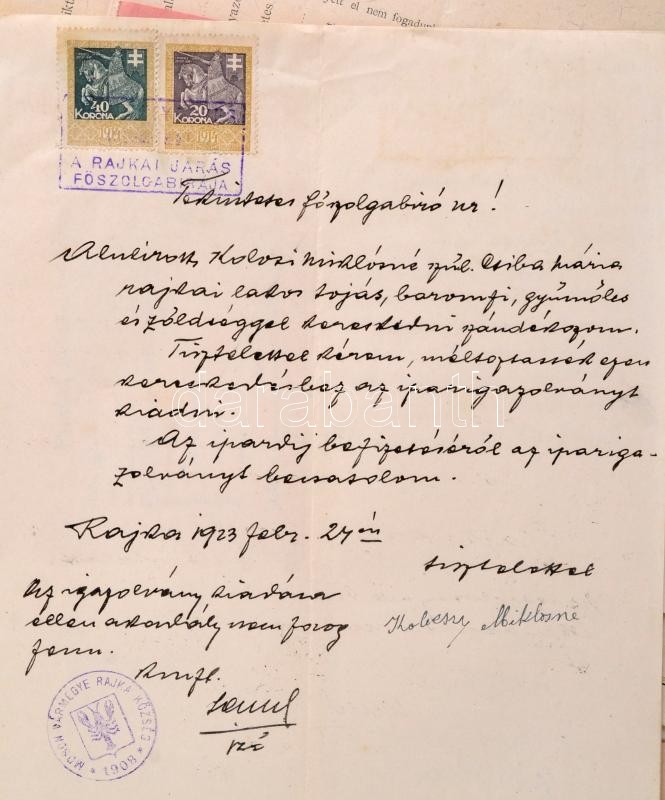 el nem fogadunk
40
KORONA
1914
20
KORONA
1914
A RAJKAI JÁRÁS
FŐSZOLGABIRÁJA
Tekintetes főszolgabiró ur!
Alulirott Kolozsi Miklósné szül. Csiba Mária
rajkai lakos tojás, baromfi, gyümölcs
és zöldséggel kereskedni szándékozom.
Tisztelettel kérem, méltóztassék ezen
kereskedéshez az iparigazolványt
kiadni.
Az ipardij befizetéséről az ipariga-
zolványt becsatolom.
Rajka 1923 febr. 24 én
tisztelettel
Miklósné
Az igazolvány kiadása
ellen akadály nem forog
fenn.
Kmft.
MOSON VÁRMEGYE RAJKA KÖZSÉG
* 1908 *
darabanth